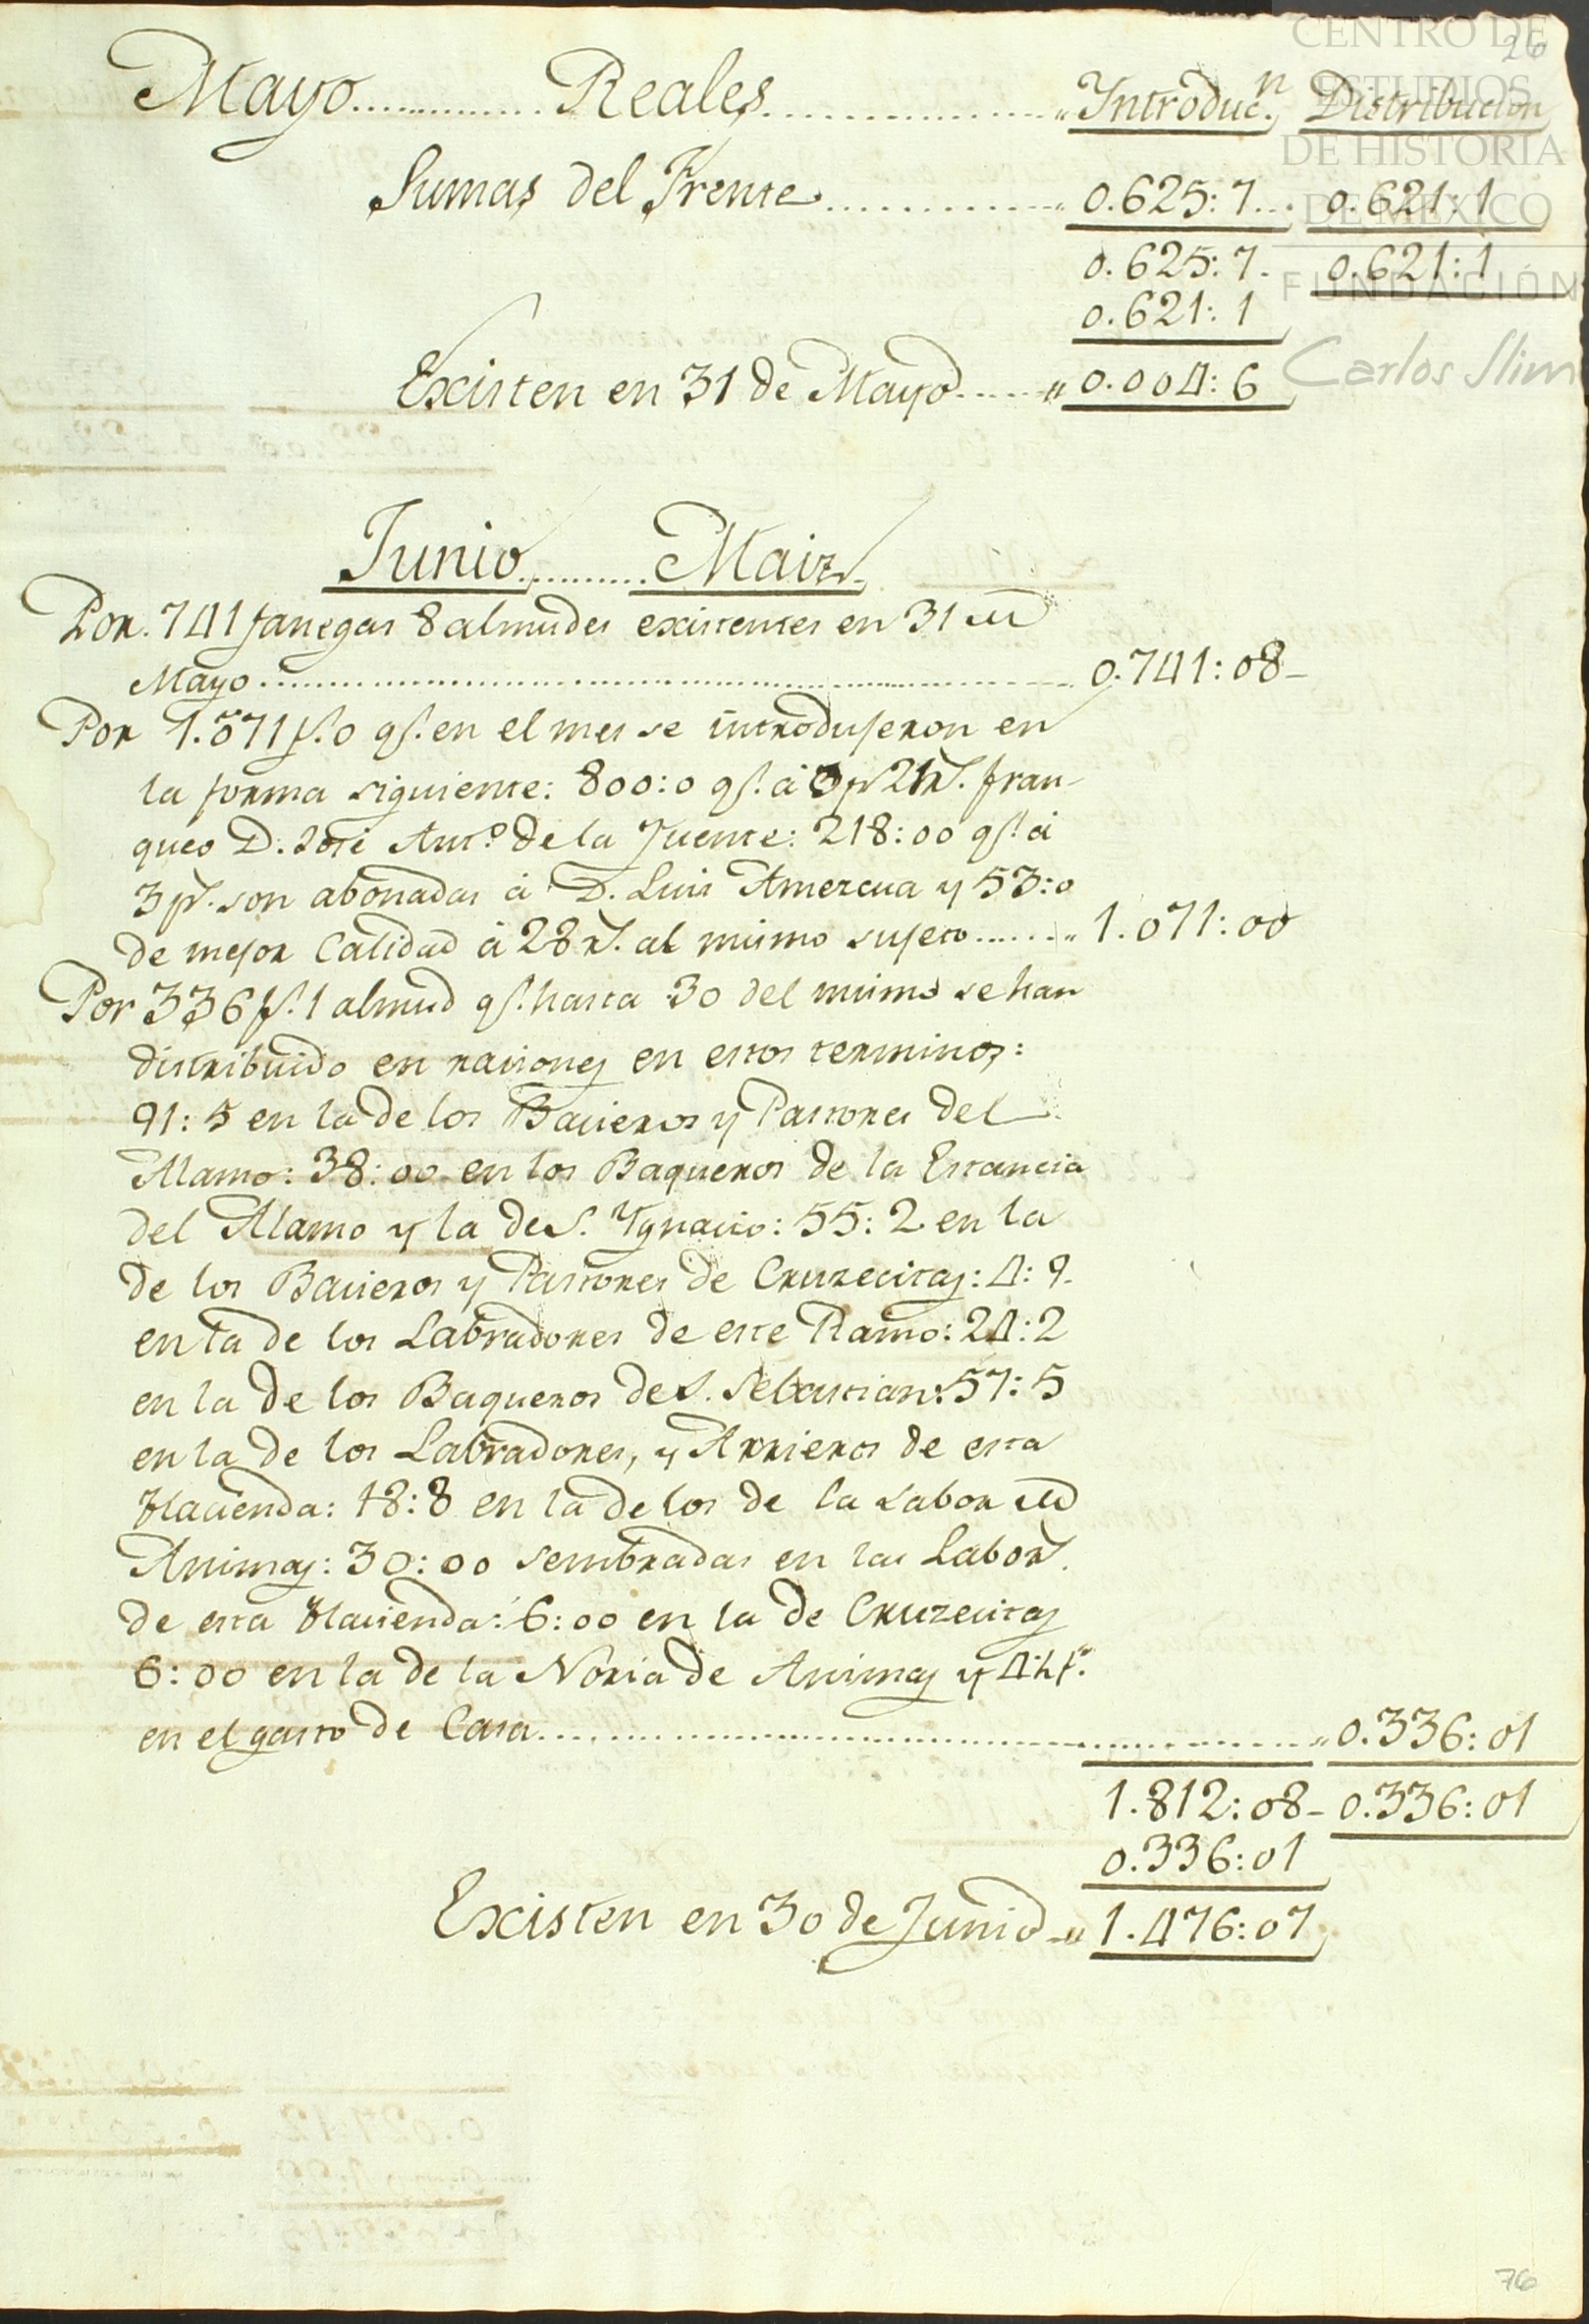 26
Mayo............Reales..................Introduc.n Distribucion
Sumas del Frente..............0.625:7... 0.621:1
0.625:7. 0.621:1
0.621:1
Existen en 31 de Mayo.....0.004:6
CENTRO DE
ESTUDIOS
DE HISTORIA
DE MÉXICO
FUNDACIÓN
Carlos Slim
Junio.......... Maiz
Por. 741 fanegas 8 almudes existentes en 31 de
Mayo............................................................0.741:08
Por 1.071 f.s 0 q.e en el mes se introdujeron en
la forma siguiente: 800:0 q.e á 21 r.s fran-
queo D. José Ant.o de la Fuente: 218:00 q.e á
3 p.s son abonadas á D. Luis Amezcua y 53:0
de mejor Calidad á 28 r.s al mismo sujeto.......1.071:00
Por 336 f.s 1 almud q.e hasta 30 del mismo se han
distribuido en raciones en estos terminos:
91:5 en la de los Bacieros y Pastores del
Alamo: 38:00 en los Baqueros de la Estancia
del Alamo y la de S. Ygnacio: 55:2 en la
de los Bacieros y Pastores de Cruzecitas: 4:9
en la de los Labradores de este Ramo: 24:2
en la de los Baqueros de S. Sebastian: 57:5
en la de los Labradores, y Arrieros de esta
Hacienda: 18:8 en la de los de la Labor de
Animas: 30:00 sembradas en las Labor.s
de esta Hacienda: 6:00 en la de Cruzecitas
6:00 en la de la Noria de Animas y
en el gasto de Casa..................................................0.336:01
1.812:08 0.336:01
0.336:01
Existen en 30 de Junio 1.476:07
76